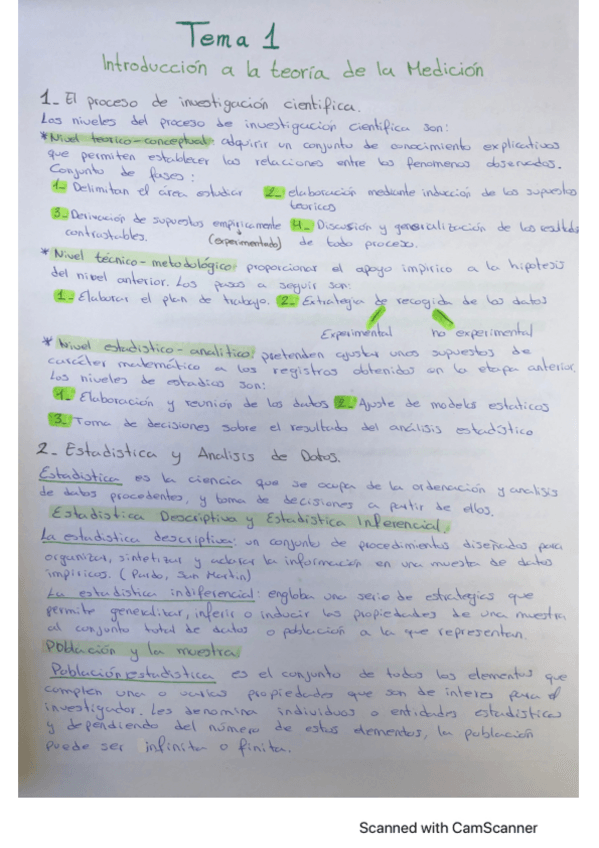 Tema 1
Introducción a la teoría de la Medición
1_ El proceso de investigación científica.
Los niveles del proceso de investigación científica son:
* Nivel teórico-conceptual: adquirir un conjunto de conocimiento explicativos
que permiten establecer las relaciones entre los fenómenos observados.
Conjunto de fases:
1_ Delimitan el área estudiar 2_ elaboración mediante inducción de los supuestos
teóricos
3_ Derivación de supuestos empíricamente 4_ Discusión y generalización de los resultados
contrastables. (experimentado) de todo proceso.
* Nivel técnico-metodológico: proporcionar el apoyo impírico a la hipótesis
del nivel anterior. Los pasos a seguir son:
1_ Elaborar el plan de trabajo. 2_ Extrategia de recogida de los datos
Experimental no experimental
* Nivel estadístico-analítico: pretenden ajustar unos supuestos de
carácter matemático a los registros obtenidos en la etapa anterior.
Los niveles de estadios son:
1_ Elaboración y reunión de los datos 2_ Ajuste de modelos estáticos
3_ Toma de decisiones sobre el resultado del análisis estadístico
2_ Estadística y Analisis de Datos.
Estadística es la ciencia que se ocupa de la ordenación y analisis
de datos procedentes, y toma de decisiones a partir de ellos.
Estadística Descriptiva y Estadística Inferencial.
La estadistica descriptiva: un conjunto de procedimientos diseñados para
organizar, sintetizar y aclarar la información en una muestra de datos
impíricos. (Pardo, San Martín)
La estadistica indiferencial: engloba una serie de estrategias que
permite generalizar, inferir o inducir las propiedades de una muestra
al conjunto total de datos o población a la que representan.
Población y la muestra
Población estadística es el conjunto de todos los elementos que
complen una o varias propiedades que son de interes para el
investigador. Les denomina individuos o entidades estadísticas
y dependiendo del número de estos elementos, la población
puede ser infinita o finita.
Scanned with CamScanner